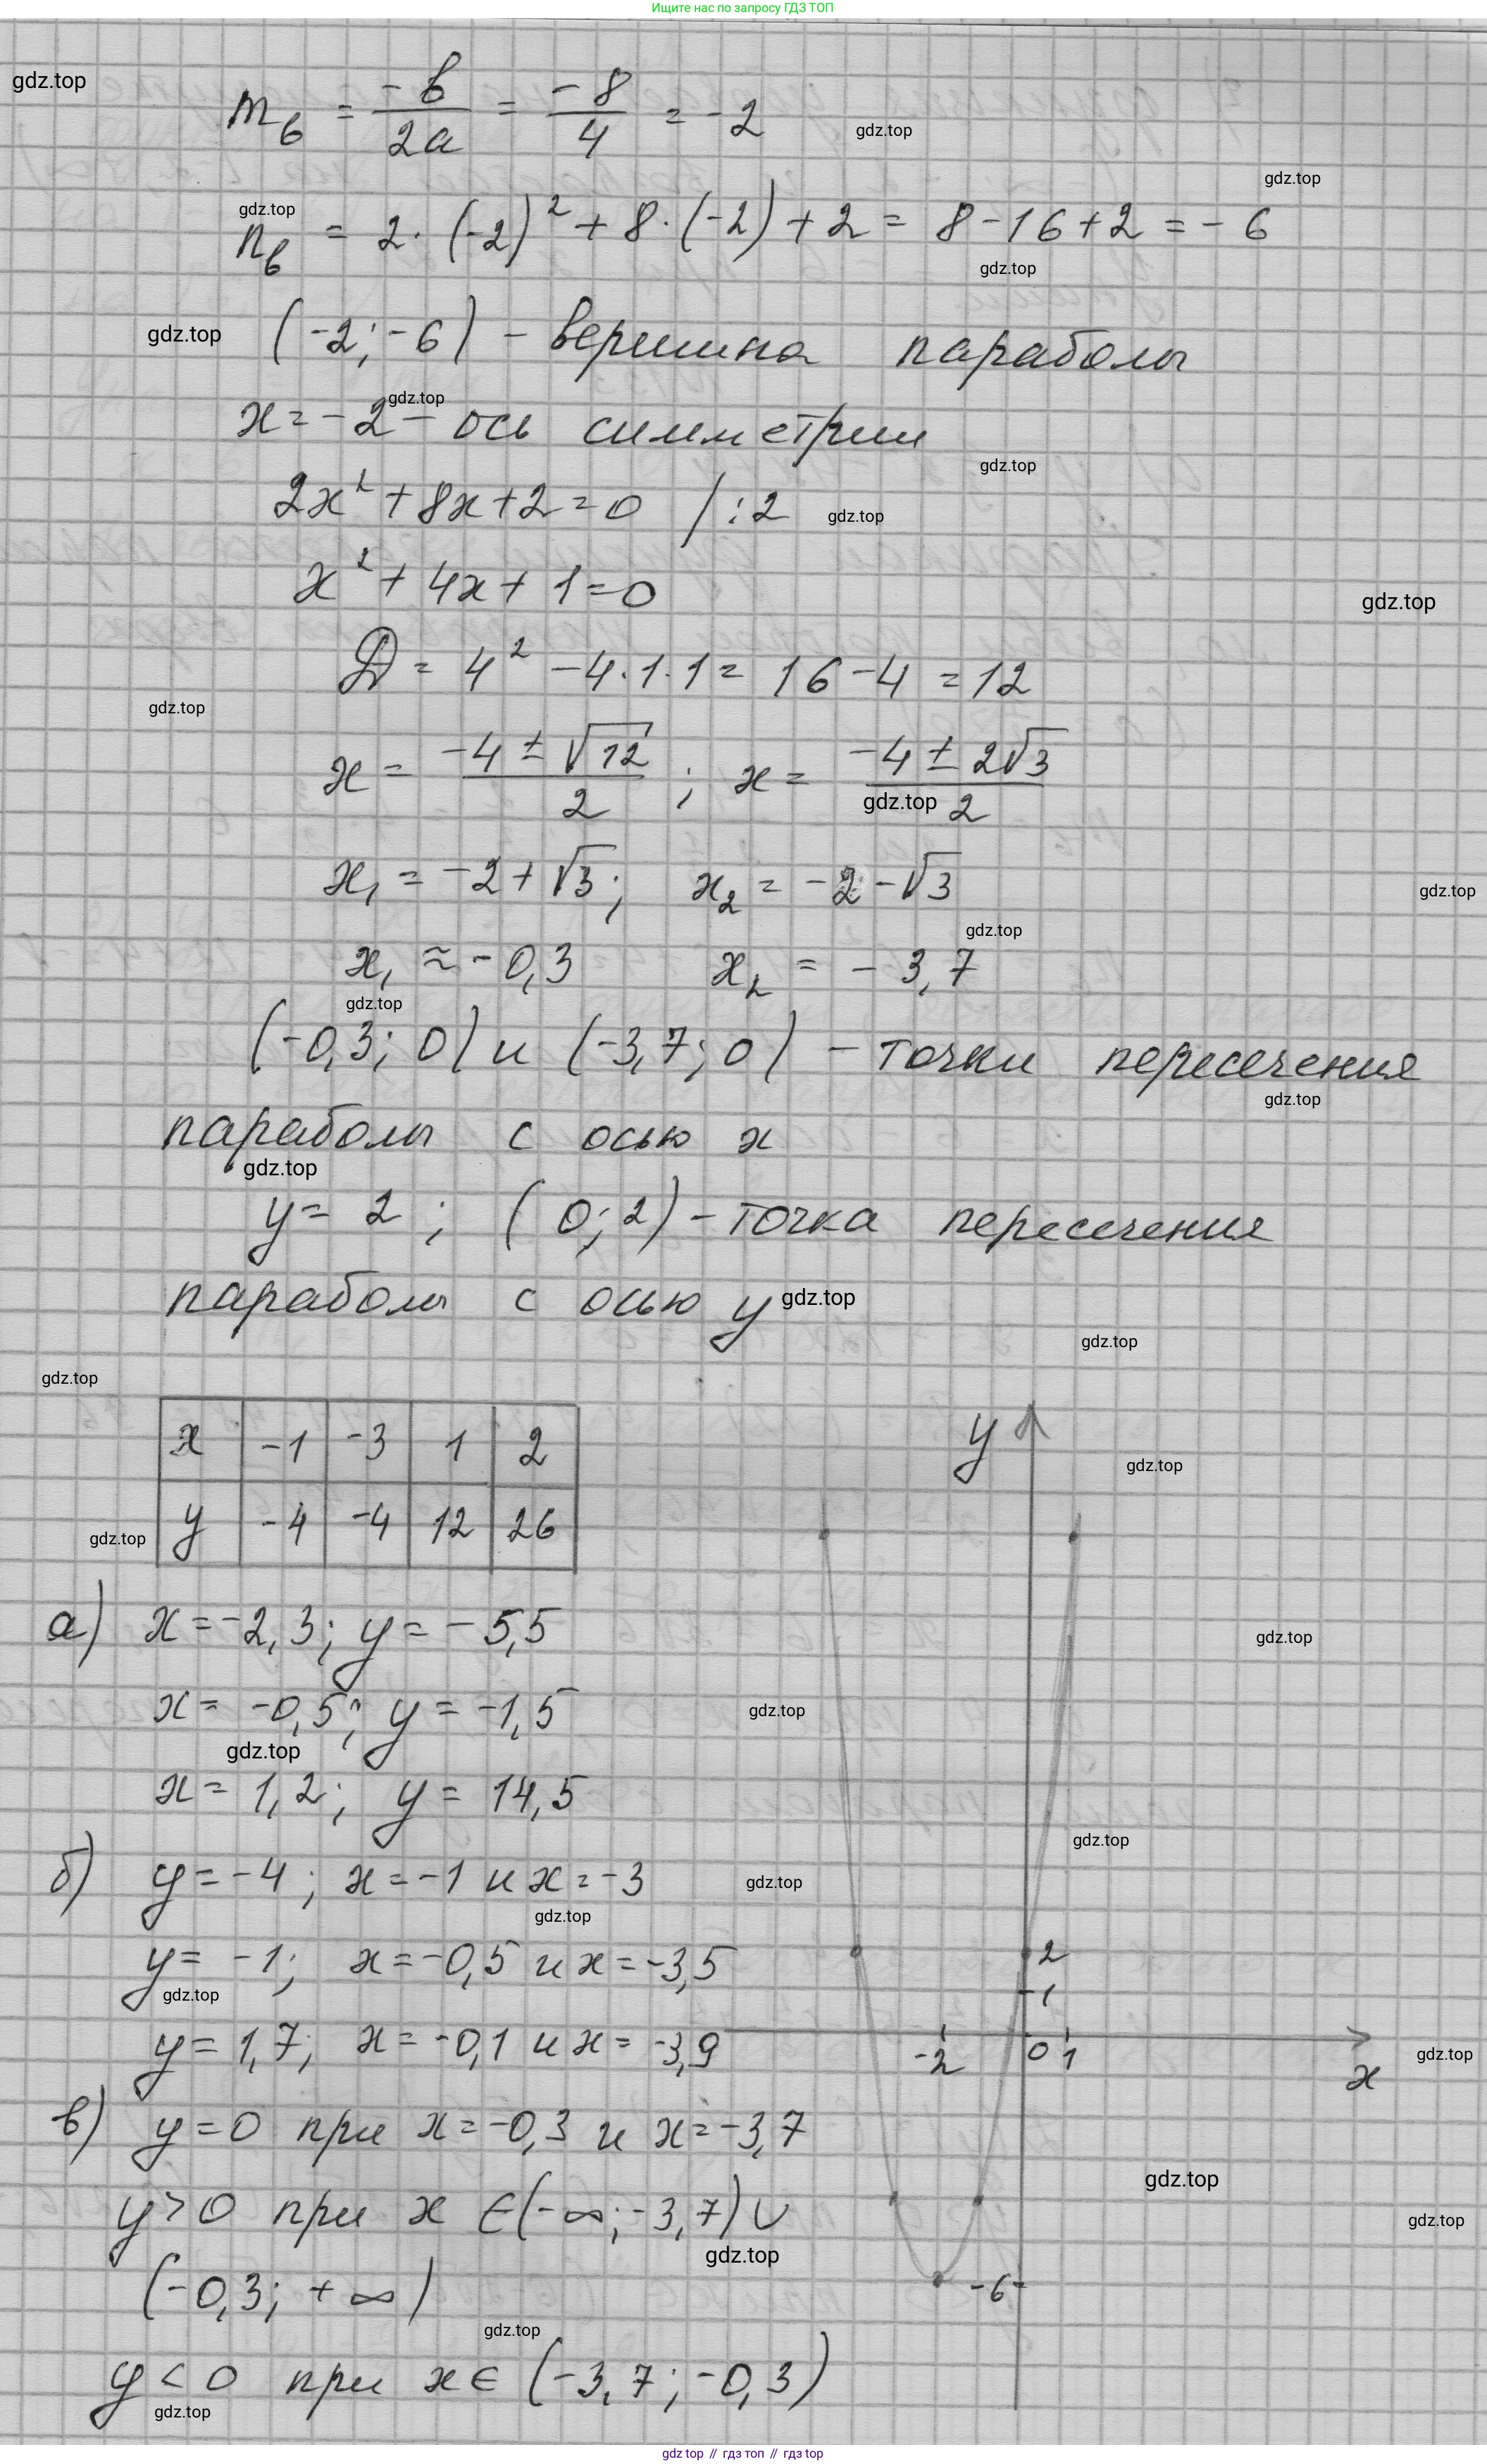 Ищите нас по запросу ГДЗ ТОП
gdz.top
m_в = -b/2a = -8/4 = -2
gdz.top
gdz.top
gdz.top
n_в = 2·(-2)² + 8·(-2) + 2 = 8 - 16 + 2 = -6
gdz.top
gdz.top
(-2; -6) - вершина параболы
gdz.top
x = -2 - ось симметрии
gdz.top
2x² + 8x + 2 = 0 / :2
gdz.top
x² + 4x + 1 = 0
gdz.top
D = 4² - 4·1·1 = 16 - 4 = 12
gdz.top
x = (-4 ± √12)/2 ; x = (-4 ± 2√3)/2
gdz.top
x₁ = -2 + √3; x₂ = -2 - √3
gdz.top
gdz.top
x₁ ≈ -0,3 x₂ = -3,7
gdz.top
(-0,3; 0) и (-3,7; 0) - точки пересечения
gdz.top
параболы с осью x
gdz.top
y = 2 ; (0; 2) - точка пересечения
параболы с осью y
gdz.top
gdz.top
gdz.top
x -1 -3 1 2
y -4 -4 12 26
gdz.top
y
gdz.top
а) x = -2,3; y = -5,5
gdz.top
x = -0,5; y = -1,5
gdz.top
gdz.top
x = 1,2; y = 14,5
gdz.top
б) y = -4; x = -1 и x = -3
gdz.top
gdz.top
y = -1; x = -0,5 и x = -3,5
gdz.top
2
1
y = 1,7; x = -0,1 и x = -3,9
-2 0 1
x
gdz.top
в) y = 0 при x = -0,3 и x = -3,7
gdz.top
y > 0 при x ∈ (-∞; -3,7) ∪
gdz.top
gdz.top
(-0,3; +∞)
-6
gdz.top
y < 0 при x ∈ (-3,7; -0,3)
gdz.top
gdz top // гдз топ // гдз top